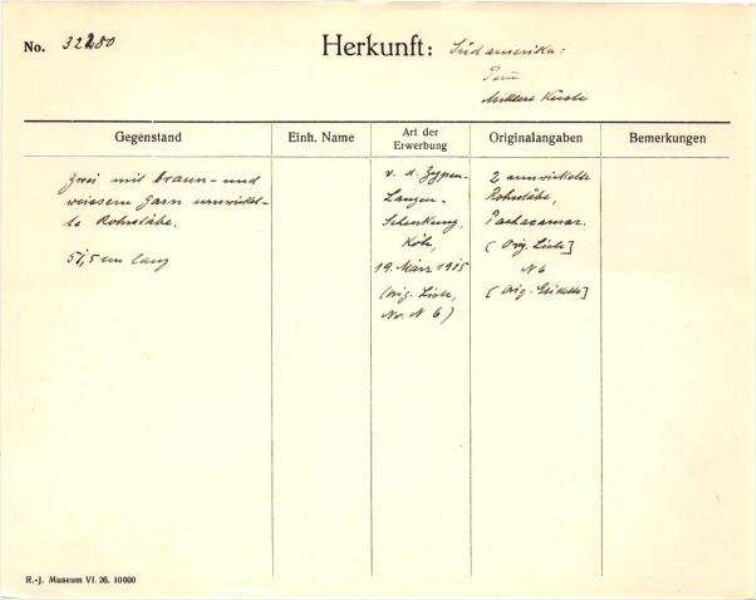 No. 32280
Herkunft: Südamerika:
Peru
Mittlere Küste
Gegenstand
Einh. Name
Art der
Erwerbung
Originalangaben
Bemerkungen
Zwei mit braun- und
weissem Garn umwickel-
te Rohrstäbe.
51,5 cm lang
v. d. Zypen-
Langen-
Schenkung,
Köln,
19. März 1915
(Orig. Liste,
Nr. N 6)
2 umwickelte
Rohrstäbe,
Pachacamac.
(Orig. Liste]
N 6
[Orig. Etikette]
R.-J. Museum VI. 26. 10000